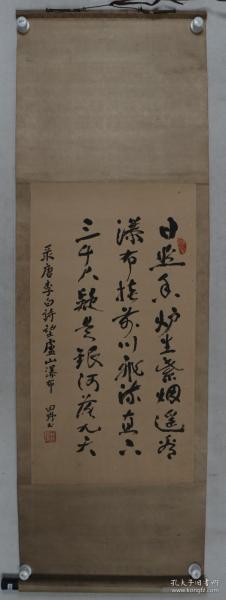 日照香炉生紫烟遥看
瀑布挂前川飞流直下
三千尺疑是银河落九天
录唐李白诗望庐山瀑布 田野书
孔夫子旧书网